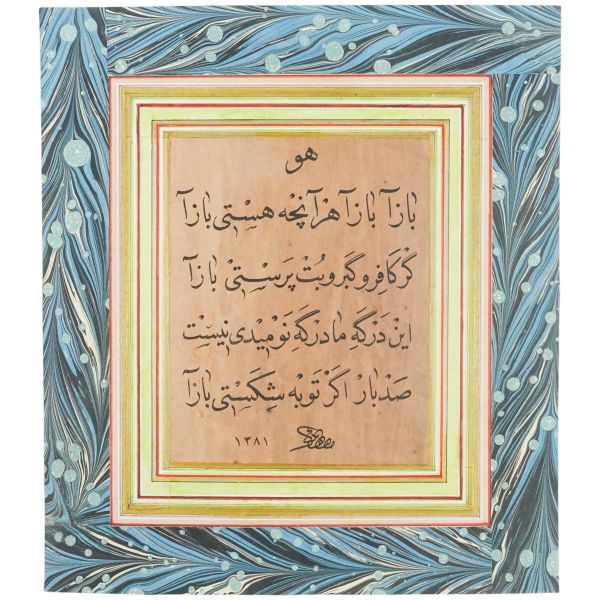 هو
بازآ بازآ هر آنچه هستی بازآ
گر کافر و گبر و بت پرستی بازآ
این درگه ما درگه نومیدی نیست
صد بار اگر توبه شکستی بازآ
۱۳۸۱